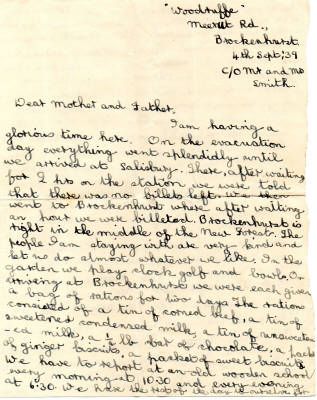 "Woodruffe"
Meerut Rd.,
Brockenhurst.
4th Sept; '39
C/O Mr and Mrs
Smith.
Dear Mother and Father,
I am having a
glorious time here. On the evacuation
day everything went splendidly until
we arrived at Salisbury. There, after waiting
for 2 hrs on the station we were told
that there was no billets left. We then
went to Brockenhurst and after waiting
an hour we were billeted. Brockenhurst is
right in the middle of the New Forest. The
people I am staying with are very kind and
let us do almost whatever we like. In the
garden we play clock golf and bowls. On
arriving at Brockenhurst we were each given
a bag of rations for two days. The rations
consisted of a tin of corned beef, a tin of
sweetened condensed milk, a tin of unsweeten
-ed milk, a ½ lb bar of chocolate, a packet
of ginger biscuits, a packet of sweet biscuits
We have to report at an old wooden school
every morning at 10.30 and every evening
at 6.30. We have the rest of the day to ourselves for